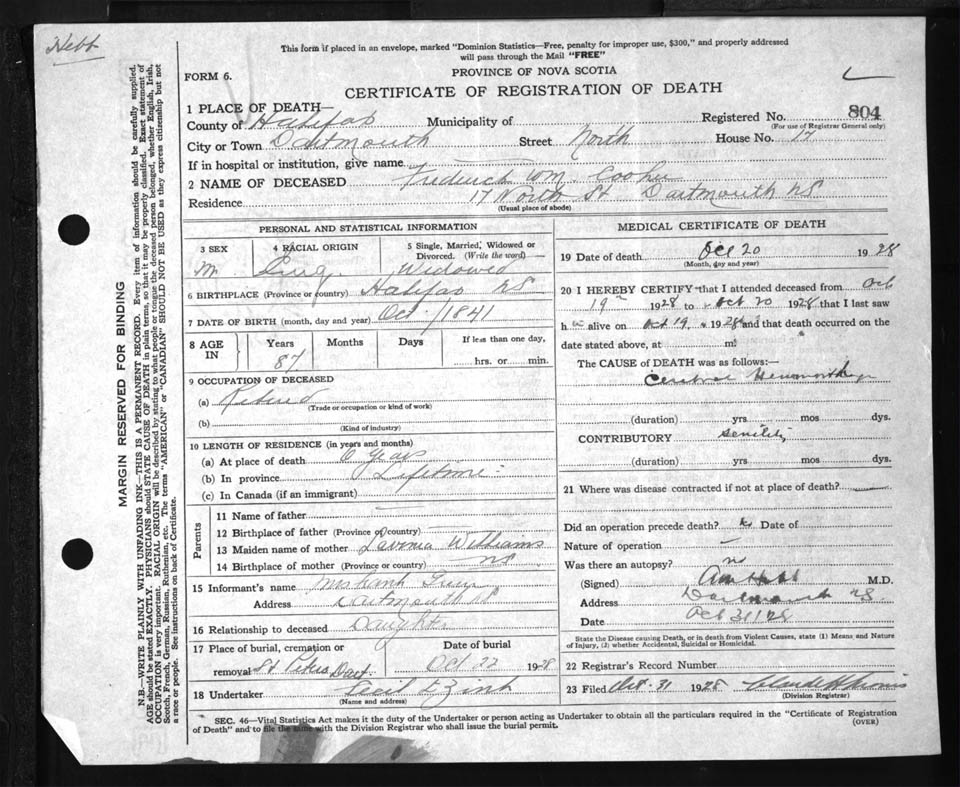 Hebb
This form if placed in an envelope, marked "Dominion Statistics—Free, penalty for improper use, $300," and properly addressed
will pass through the Mail "FREE"
FORM 6.
PROVINCE OF NOVA SCOTIA
CERTIFICATE OF REGISTRATION OF DEATH
1 PLACE OF DEATH—
County of Halifax Municipality of Registered No. 804
(For use of Registrar General only)
City or Town Dartmouth Street North House No. 17
If in hospital or institution, give name
2 NAME OF DECEASED Frederick Wm.
Residence 17 North St Dartmouth NS
(Usual place of abode)
PERSONAL AND STATISTICAL INFORMATION
3 SEX 4 RACIAL ORIGIN 5 Single, Married, Widowed or
Divorced. (Write the word)
M. Eng. Widowed
6 BIRTHPLACE (Province or country) Halifax NS
7 DATE OF BIRTH (month, day and year) Oct. /1841
8 AGE IN Years Months Days If less than one day,
87 hrs. or min.
9 OCCUPATION OF DECEASED
(a) Retired
(Trade or occupation or kind of work)
(b)
(Kind of industry)
10 LENGTH OF RESIDENCE (in years and months)
(a) At place of death 6 years
(b) In province Lifetime
(c) In Canada (if an immigrant)
Parents
11 Name of father
12 Birthplace of father (Province or country)
13 Maiden name of mother Lavonia Williams
14 Birthplace of mother (Province or country) NS
15 Informant's name Mrs Frank
Address Dartmouth NS
16 Relationship to deceased Daughter
17 Place of burial, cremation or Date of burial
removal St Peters Dart. Oct 22 1928
18 Undertaker Cecil E Zink
(Name and address)
MEDICAL CERTIFICATE OF DEATH
19 Date of death Oct 20 1928
(Month, day and year)
20 I HEREBY CERTIFY that I attended deceased from Oct
19 1928 to Oct 20 1928 that I last saw
h alive on Oct 19 1928 and that death occurred on the
date stated above, at m.
The CAUSE of DEATH was as follows:—
Cerebral Hemorrhage
(duration) yrs mos dys.
CONTRIBUTORY senility
(duration) yrs mos dys.
21 Where was disease contracted if not at place of death?
Did an operation precede death? No Date of
Nature of operation —
Was there an autopsy? no
(Signed) Hebb M.D.
Address Dartmouth NS.
Date Oct 31/28
State the Disease causing Death, or in death from Violent Causes, state (1) Means and Nature
of Injury, (2) whether Accidental, Suicidal or Homicidal.
22 Registrar's Record Number
23 Filed Oct. 31 1928
(Division Registrar)
SEC. 46—Vital Statistics Act makes it the duty of the Undertaker or person acting as Undertaker to obtain all the particulars required in the "Certificate of Registration
of Death" and to file the same with the Division Registrar who shall issue the burial permit.
(OVER)
MARGIN RESERVED FOR BINDING
N.B.—WRITE PLAINLY WITH UNFADING INK—THIS IS A PERMANENT RECORD. Every item of information should be carefully supplied.
AGE should be stated EXACTLY. PHYSICIANS should STATE CAUSE OF DEATH in plain terms, so that it may be properly classified. Exact statement of
OCCUPATION is very important. RACIAL ORIGIN will be described by stating to what people or tongue the deceased person belonged, whether English, Irish,
Scotch, French, German, Russian, Ruthenian, etc. The terms "AMERICAN" or "CANADIAN" SHOULD NOT BE USED as they express citizenship but not
a race or people. See instructions on back of Certificate.